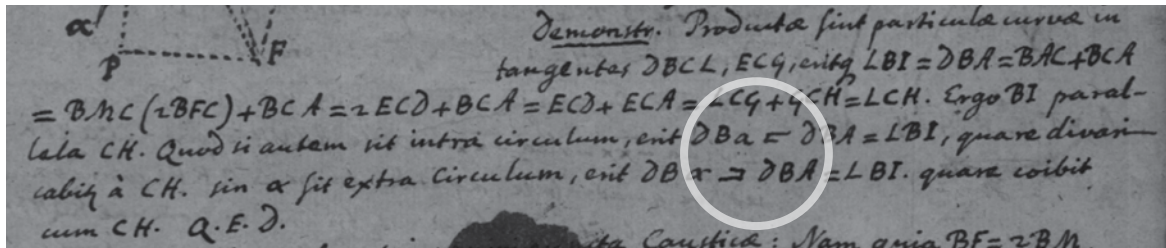 α
P F
Demonstr. Productæ sint particulæ curvæ in
tangentes DBCL, ECG, eritq LBI = DBA = BAC + BCA
= BMC (2BFC) + BCA = 2 ECD + BCA = ECD + ECA = LCG + GCH = LCH. Ergo BI paral-
lela CH. Quod si autem sit intra circulum, erit DBa ⊏ DBA = LBI, quare divari-
cabit à CH. sin α sit extra circulum, erit DBα ⊐ DBA = LBI. quare coibit
cum CH. Q.E.D.
Caustica: Nam quia BF = 2BM